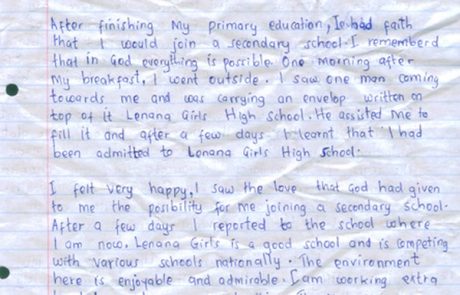 After finishing my primary education, I had faith
that I would join a secondary school. I rememberd
that in God everything is possible. One morning after
my breakfast, I went outside. I saw one man coming
towards me and was carrying an envelop written on
top of it Lenana Girls High school. He assisted me to
fill it and after a few days I learnt that I had
been admitted to Lenana Girls High School.
I felt very happy, I saw the love that God had given
to me the posibility for me joining a secondary school.
After a few days I reported to the school where
I am now. Lenana Girls is a good school and is competing
with various schools nationally. The environment
here is enjoyable and admirable. I am working extra